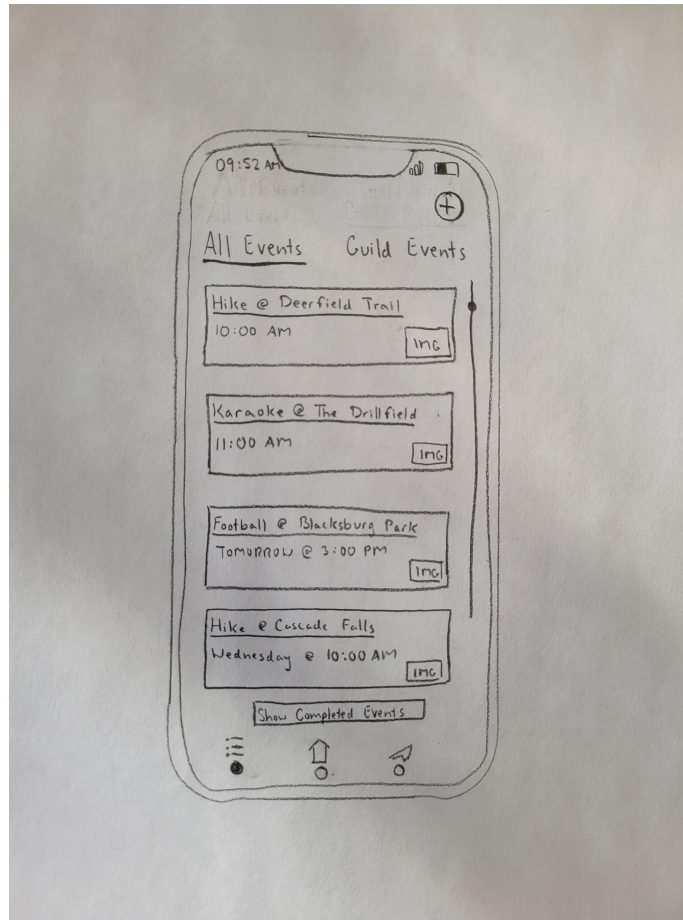 09:52 AM
All Events Guild Events
Hike @ Deerfield Trail
10:00 AM
IMG
Karaoke @ The Drillfield
11:00 AM
IMG
Football @ Blacksburg Park
TOMORROW @ 3:00 PM
IMG
Hike @ Cascade Falls
Wednesday @ 10:00 AM
IMG
Show Completed Events